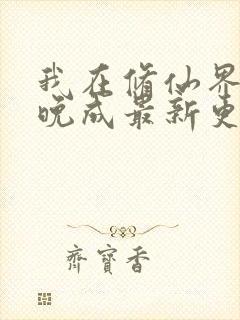 我在修仙界
晚成最新更
齊寶香